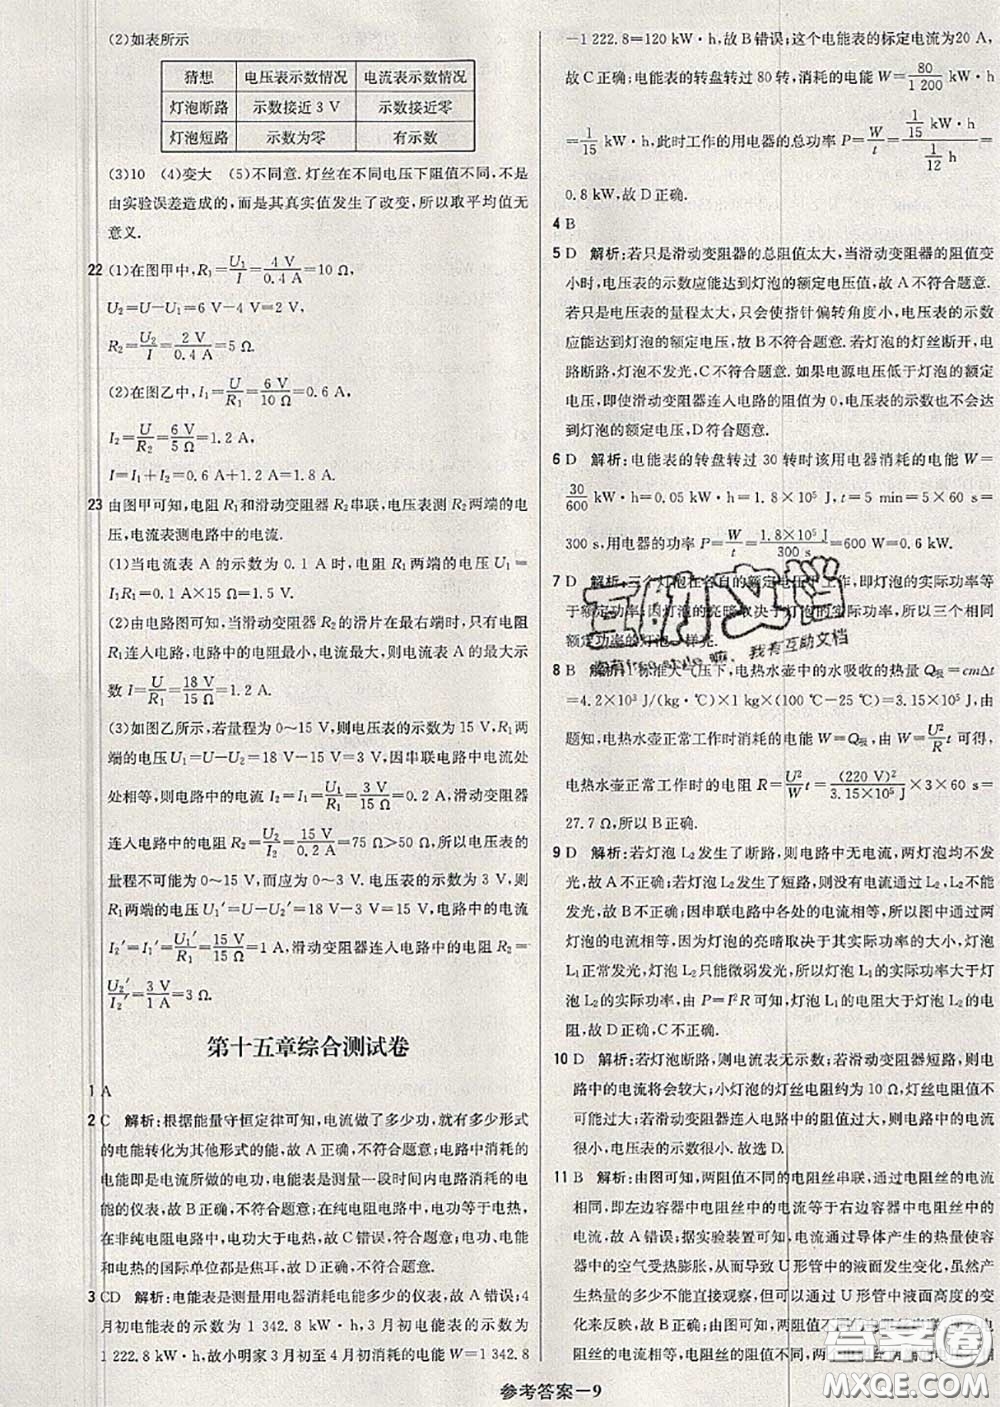 (2)如表所示
猜想 电压表示数情况 电流表示数情况
灯泡断路 示数接近 3 V 示数接近零
灯泡短路 示数为零 有示数
(3)10 (4)变大 (5)不同意. 灯丝在不同电压下阻值不同,不是
由实验误差造成的,而是其真实值发生了改变,所以取平均值无
意义.
22 (1)在图甲中,R₁=U₁/I=4 V/0.4 A=10 Ω,
U₂=U−U₁=6 V−4 V=2 V,
R₂=U₂/I=2 V/0.4 A=5 Ω.
(2)在图乙中,I₁=U/R₁=6 V/10 Ω=0.6 A,
I₂=U/R₂=6 V/5 Ω=1.2 A,
I=I₁+I₂=0.6 A+1.2 A=1.8 A.
23 由图甲可知,电阻 R₁和滑动变阻器 R₂串联,电压表测 R₂两端的电
压,电流表测电路中的电流.
(1)当电流表的示数为 0.1 A 时,电阻 R₁两端的电压 U₁=
I₁R₁=0.1 A×15 Ω=1.5 V.
(2)由电路图可知,当滑动变阻器的滑片在最右端时,只有电阻
R₁连入电路,电路中的电阻最小,电流最大,所以电流表 A 的最大示
数 I=U/R₁=18 V/15 Ω=1.2 A.
(3)如图乙所示,若量程为 0～15 V,则电压表的示数为 15 V,R₁两
端的电压 U₁=U−U₂=18 V−15 V=3 V,因串联电路中的电流处
处相等,则电路中的电流 I₂=I₁=U₁/R₁=3 V/15 Ω=0.2 A,滑动变阻器
连入电路中的电阻 R₂=U₂/I₂=15 V/0.2 A=75 Ω>50 Ω,所以电压表的
量程不可能为 0～15 V,而为 0～3 V. 电压表的示数为 3 V,则
R₁两端的电压 U₁′=U−U₂′=18 V−3 V=15 V,电路中的电流
I₂′=I₁′=U₁′/R₁=15 V/15 Ω=1 A,滑动变阻器连入电路中的电阻 R₂=
U₂′/I₂′=3 V/1 A=3 Ω.
第十五章综合测试卷
1 A
2 C 解析:根据能量守恒定律可知,电流做了多少功,就有多少形式
的电能转化为其他形式的能,故 A 正确,不符合题意;电路中消耗的
电能即是电流所做的电功,电能表是测量一段时间内电路消耗的电
能的仪表,故 B 正确,不符合题意;在纯电阻电路中,电功等于电热,
在非纯电阻电路中,电功大于电热,故 C 错误,符合题意;电功、电能
和电热的国际单位都是焦耳,故 D 正确,不符合题意.
3 CD 解析:电能表是测量用电器消耗电能多少的仪表,故 A 错误;4
月初电能表的示数为 1 342.8 kW·h,3 月初电能表的示数为
1 222.8 kW·h,故小明家 3 月初至 4 月初消耗的电能 W=1 342.8
−1 222.8=120 kW·h,故 B 错误;这个电能表的标定电流为20 A,
故 C 正确;电能表的转盘转过 80 转,消耗的电能 W=80/1 200 kW·h
=1/15 kW·h,此时工作的用电器的总功率 P=W/t=(1/15 kW·h)/(1/12 h)=
0.8 kW,故 D 正确.
4 B
5 D 解析:若只是滑动变阻器的总阻值太大,当滑动变阻器的阻值变
小时,电压表的示数应能达到灯泡的额定电压值,故 A 不符合题意.
若只是电压表的量程太大,只会使指针偏转角度小,电压表的示数
应能达到灯泡的额定电压,故 B 不符合题意. 若灯泡的灯丝断开,电
路断路,灯泡不发光,C 不符合题意. 如果电源电压低于灯泡的额定
电压,即使滑动变阻器连入电路的阻值为 0,电压表的示数也不会达
到灯泡的额定电压,D 符合题意.
6 D 解析:电能表的转盘转过 30 转时该用电器消耗的电能 W=
30/600 kW·h=0.05 kW·h=1.8×10⁵ J,t=5 min=5×60 s=
300 s,用电器的功率 P=W/t=1.8×10⁵ J/300 s=600 W=0.6 kW.
7 D 解析:三个灯泡在各自的额定电压下工作,即灯泡的实际功率等
于额定功率;因灯泡的亮暗取决于灯泡的实际功率,所以三个相同
额定功率的灯泡一样亮.
8 B 解析:1标准大气压下,电热水壶中的水吸收的热量 Q吸=cmΔt
=4.2×10³ J/(kg·℃)×1 kg×(100 ℃−25 ℃)=3.15×10⁵ J,由
题知,电热水壶正常工作时消耗的电能 W=Q吸,由 W=U²/R t 可得,
电热水壶正常工作时的电阻 R=U²/W t=(220 V)²/3.15×10⁵ J×3×60 s=
27.7 Ω,所以 B 正确.
9 D 解析:若灯泡 L₂发生了断路,则电路中无电流,两灯泡均不发
光,故 A 不正确;若灯泡 L₂发生了短路,则灯泡没有电流通过不发
光,故 B 不正确;因串联电路中各处的电流相等,所以通过两
灯泡的电流相等,又因灯泡的亮暗取决于实际功率的大小,灯泡
L₁正常发光,灯泡 L₂只能微弱发光,所以灯泡 L₁的实际功率大于灯
泡 L₂的实际功率,由 P=I²R 可知,灯泡 L₁的电阻大于灯泡 L₂的电
阻,故 D 正确,C 不正确.
10 D 解析:若灯泡断路,则电流表无示数;若滑动变阻器短路,则电
路中的电流将会较大;小灯泡的灯丝电阻约为 10 Ω,灯丝电阻不
可能过大;若滑动变阻器连入电路中的阻值过大,则电路中的电流
很小,电压表的示数很小. 故选 D.
11 B 解析:由图可知,两阻值不同的电阻丝串联,通过电阻丝的电流
相同,即左边容器中电阻丝的电流等于右边容器中电阻丝中的
电流,故 A 错误;根据实验装置可知,电流通过导体产生的热量使容
器中的空气受热膨胀,从而导致 U 形管中的液面发生变化,虽然产
生热量的多少不能直接观察,但可以通过 U 形管中液面高度差的变化
来反映,故
电阻丝的电
参考答案－9
互助文档
盗有free style嘛,我有互助文档
答案圈
MXQE.COM